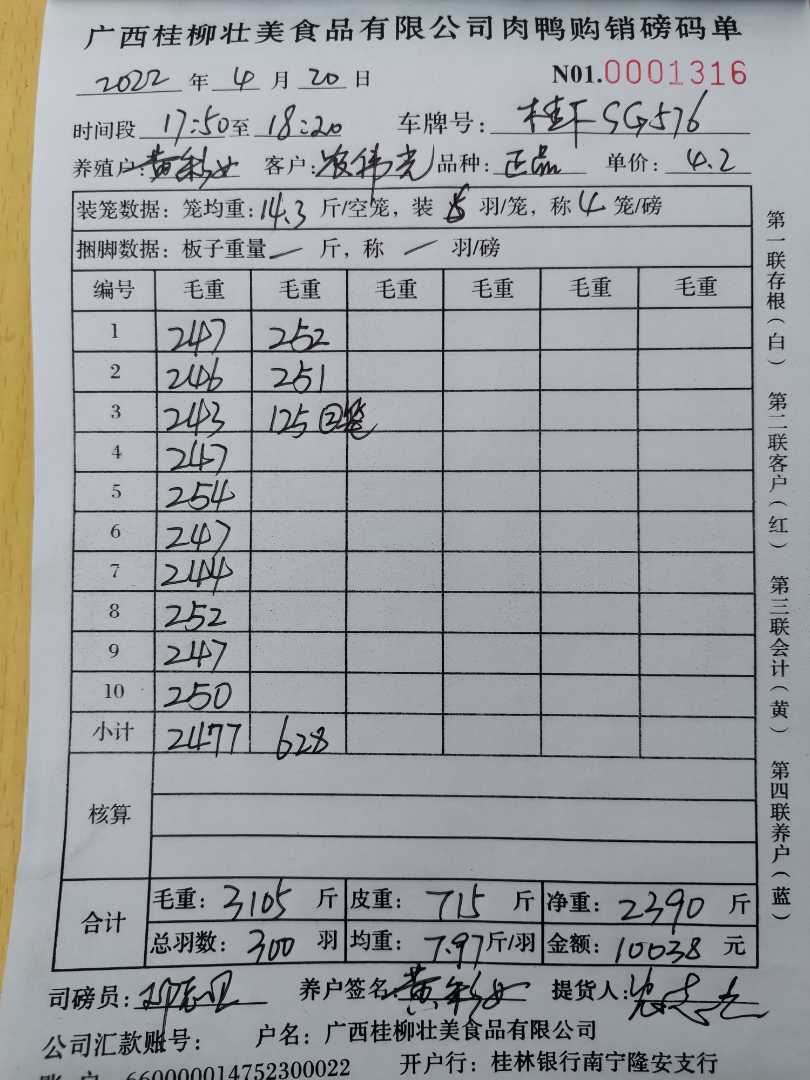 广西桂柳壮美食品有限公司肉鸭购销磅码单
2022 年 4 月 20 日 N01.0001316
时间段 17:50 至 18:20 车牌号: 桂F SG576
养殖户: 黄彩女 客户: 农伟光 品种: 正品 单价: 4.2
装笼数据: 笼均重: 14.3 斤/空笼, 装 羽/笼, 称 4 笼/磅
捆脚数据: 板子重量 — 斤, 称 — 羽/磅
编号 毛重 毛重 毛重 毛重 毛重 毛重
1 247 252
2 246 251
3 243 125 ②笼
4 247
5 254
6 247
7 244
8 252
9 247
10 250
小计 2477 628
核算
合计
毛重: 3105 斤 皮重: 715 斤 净重: 2390 斤
总羽数: 300 羽 均重: 7.97 斤/羽 金额: 10038 元
司磅员: 养户签名: 黄彩女 提货人:
公司汇款账号: 户名: 广西桂柳壮美食品有限公司
账 户 660000014752300022 开户行: 桂林银行南宁隆安支行
第一联存根(白) 第二联客户(红) 第三联会计(黄) 第四联养户(蓝)